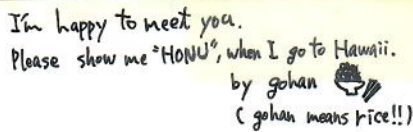 I'm happy to meet you.
Please show me "HONU", when I go to Hawaii.
by gohan
( gohan means rice!!)